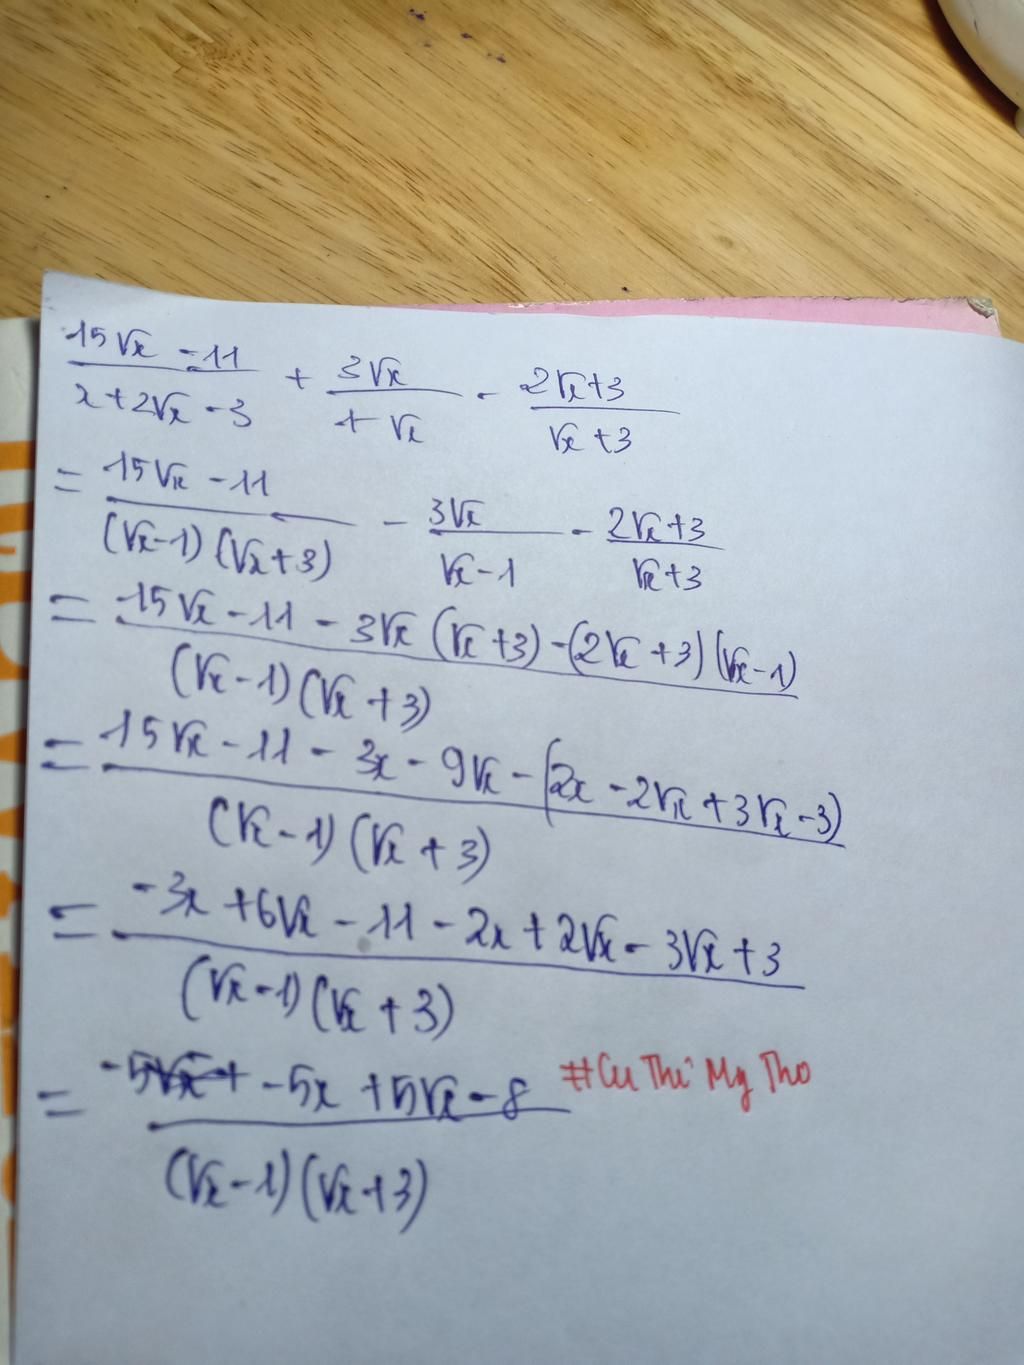 15√x - 11 / x + 2√x - 3 + 3√x / 1 - √x - 2√x + 3 / √x + 3
= 15√x - 11 / (√x - 1)(√x + 3) - 3√x / √x - 1 - 2√x + 3 / √x + 3
= 15√x - 11 - 3√x (√x + 3) - (2√x + 3)(√x - 1) / (√x - 1)(√x + 3)
= 15√x - 11 - 3x - 9√x - (2x - 2√x + 3√x - 3) / (√x - 1)(√x + 3)
= -3x + 6√x - 11 - 2x + 2√x - 3√x + 3 / (√x - 1)(√x + 3)
= -5x + 5√x - 8 / (√x - 1)(√x + 3)
#Cu Thi My Tho